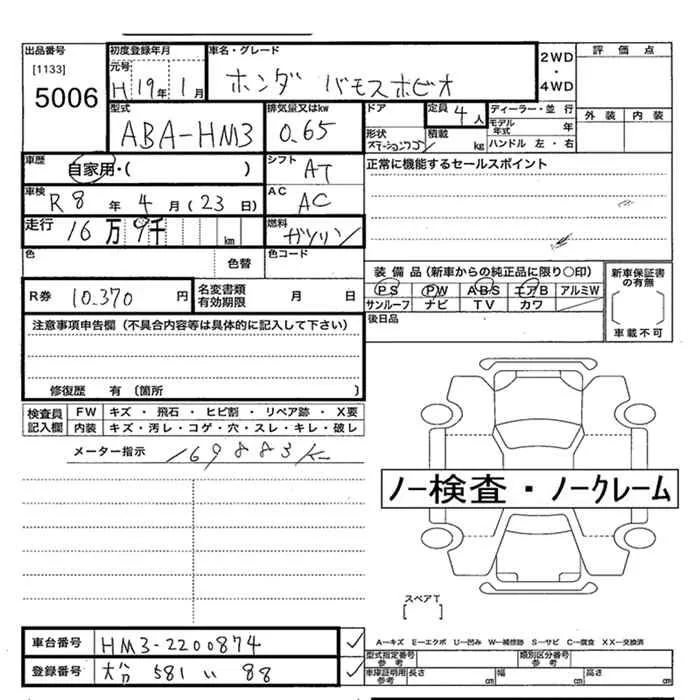 出品番号
[1133]
5006
初度登録年月
元号
H 19年 1月
車名・グレード
ホンダ バモスホビオ
2WD
・
4WD
評価点
外装 内装
型式
ABA-HM3
排気量又はkw
0.65
ドア
定員 4人
形状
ステーションワゴン
積載
/ kg
ディーラー・並行
モデル年式 年
ハンドル 左・右
車歴
自家用・( )
シフト
AT
正常に機能するセールスポイント
車検
R 8 年 4 月 (23 日)
AC
AC
走行
16万9千 km
燃料
ガソリン
色
色替
色コード
装備品(新車からの純正品に限り○印)
PS PW ABS エアB アルミW
サンルーフ ナビ TV カワ
新車保証書の有無
[ ]
車載不可
R券 10.370 円
名変書類有効期限 月 日
後日品
注意事項申告欄(不具合内容等は具体的に記入して下さい)
修復歴 有 〔箇所 〕
検査員記入欄
FW キズ・飛石・ヒビ割・リペア跡・X要
内装 キズ・汚レ・コゲ・穴・スレ・キレ・破レ
メーター指示 169883K
ノー検査・ノークレーム
スペアT
[ ]
A－キズ E－エクボ U－凹み W－補修跡 S－サビ C－腐食 XX－交換済
車台番号 HM3-2200874
登録番号 大分 581 い 88
型式指定番号参考
類別区分番号参考
車庫証明用参考
長さ cm 幅 cm 高さ cm